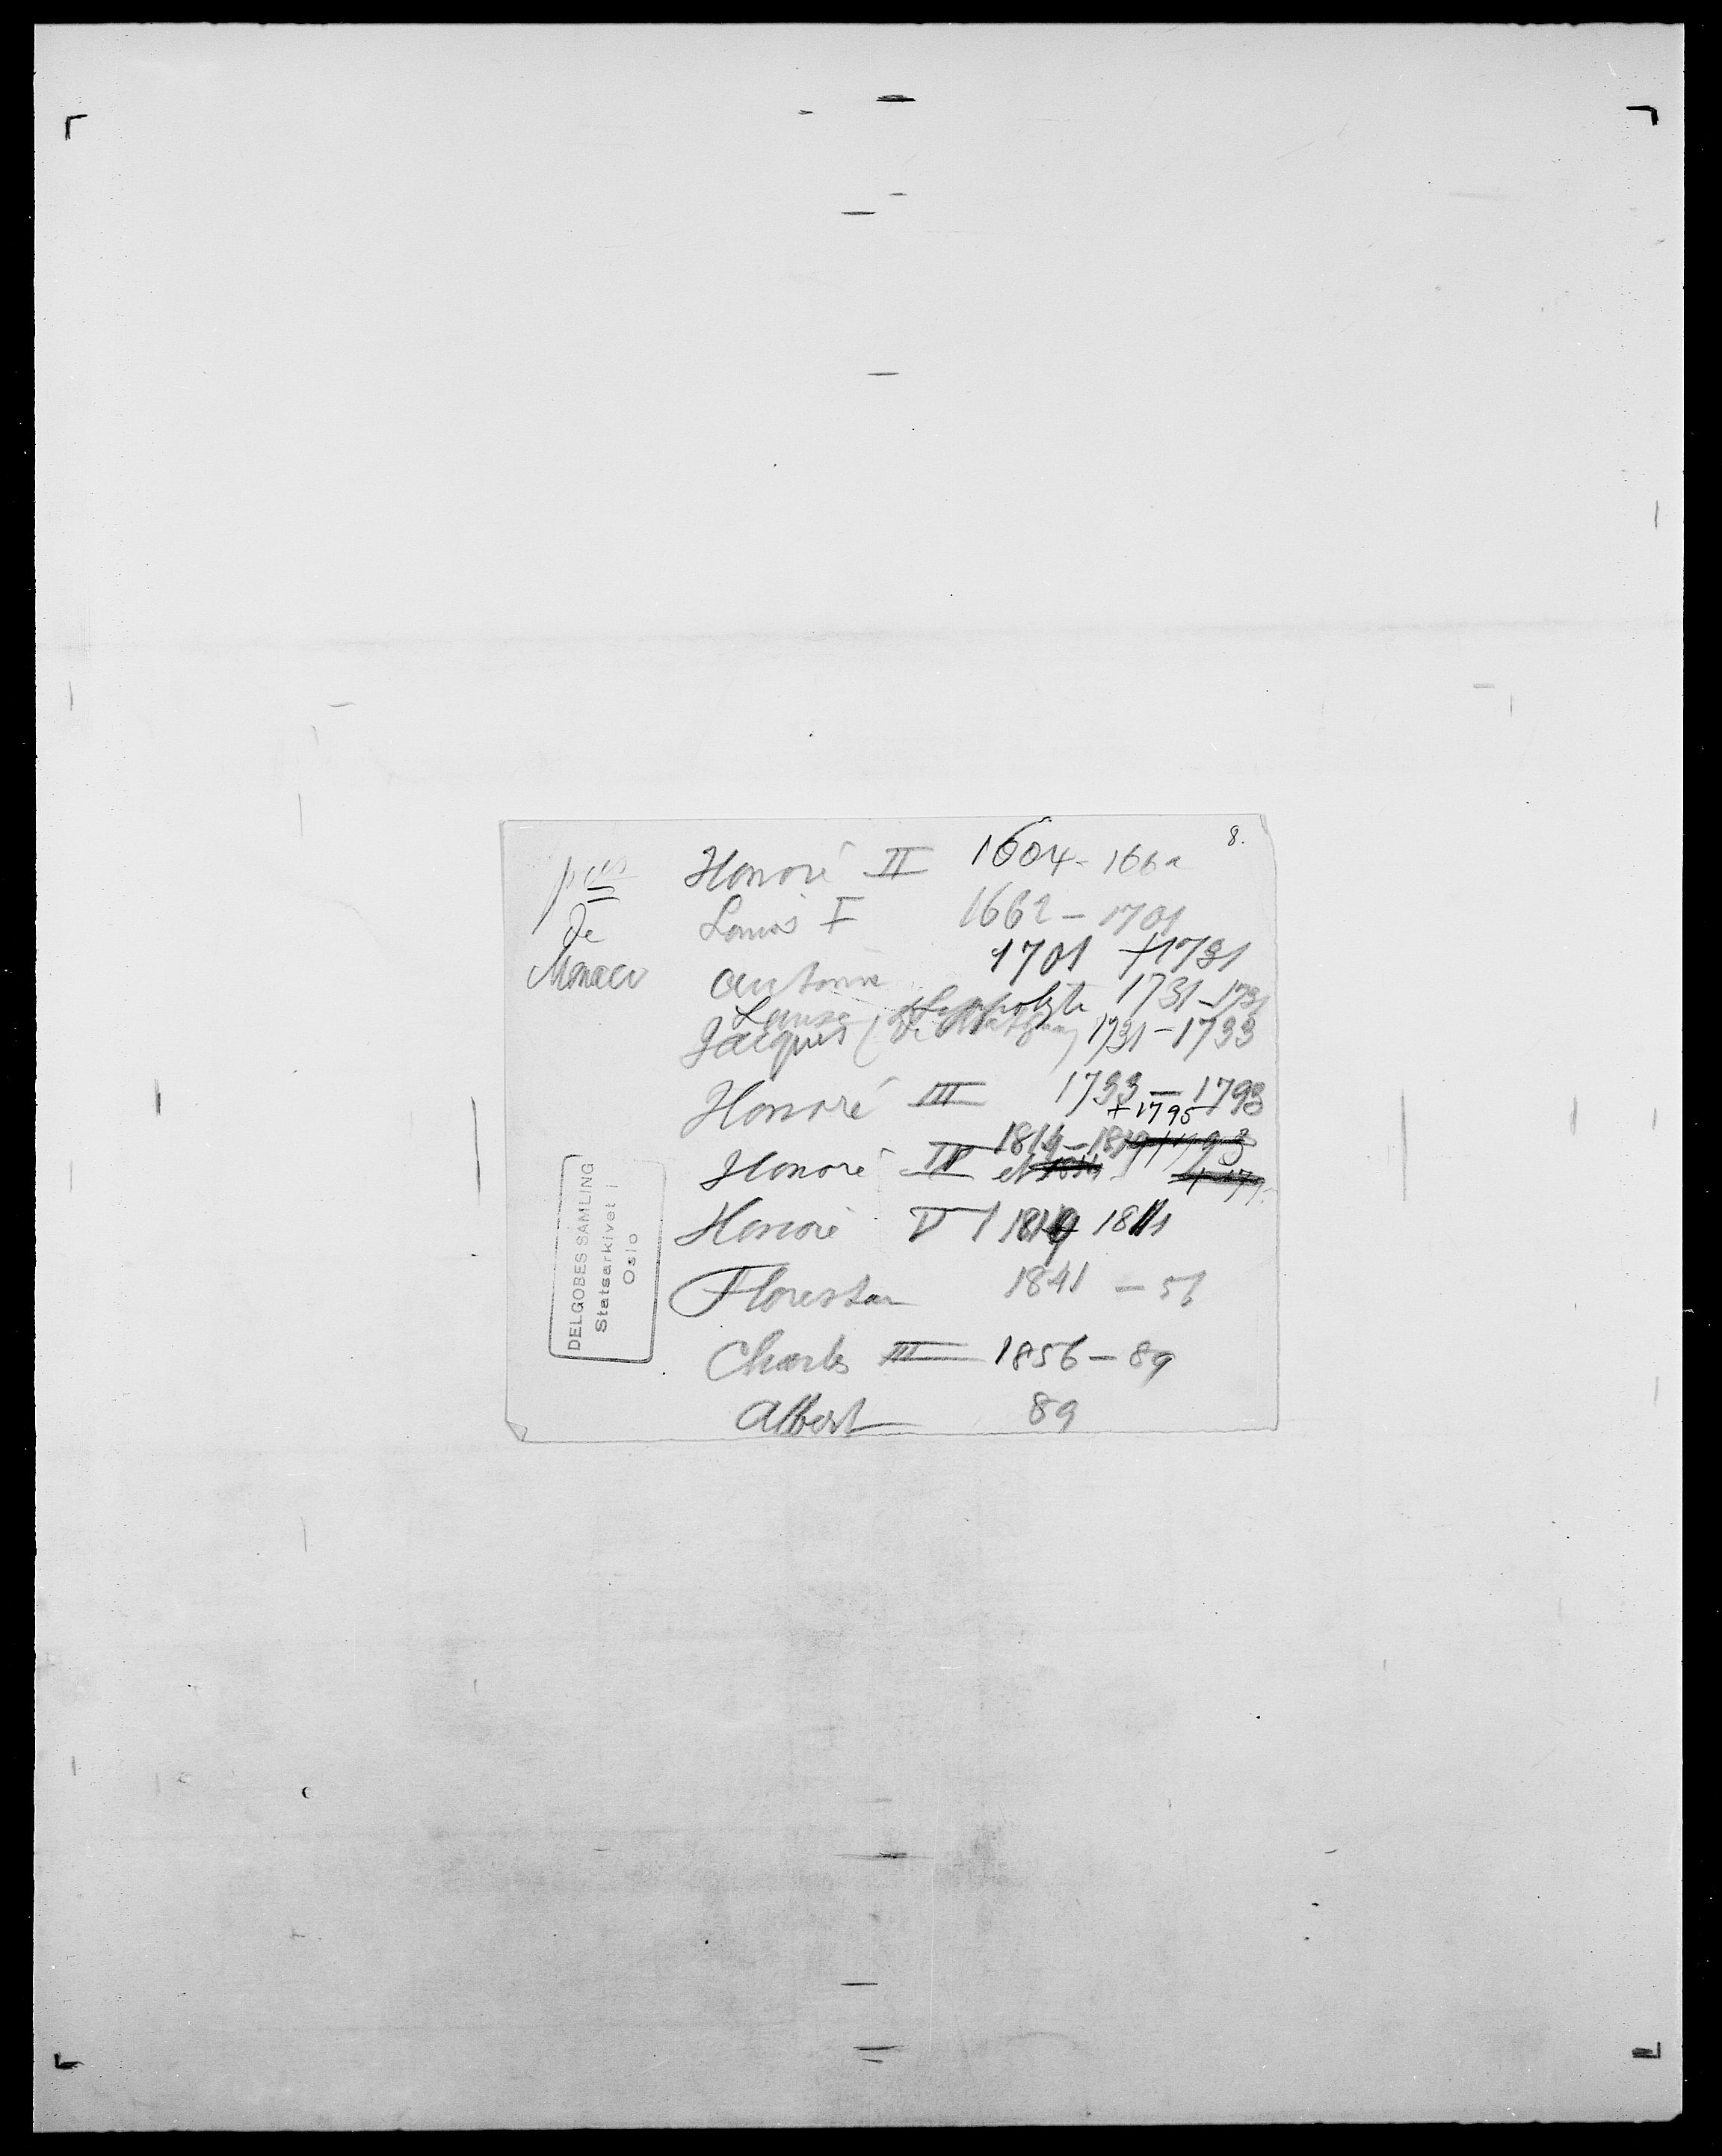 8.
pces
de
Monaco
Honoré II 1604 - 1662
Louis I 1662 - 1701
Antoine 1701 + 1731
Louise Hippolyte 1731 - 1731
Jacques (de Matignon) 1731 - 1733
Honoré III 1733 - 1793
+ 1795
Honoré IV 1814 - 1819
Honoré V 1819 1841
Florestan 1841 - 56
Charles III 1856 - 89
Albert 89
DELGOBES SAMLING
Statsarkivet i
Oslo